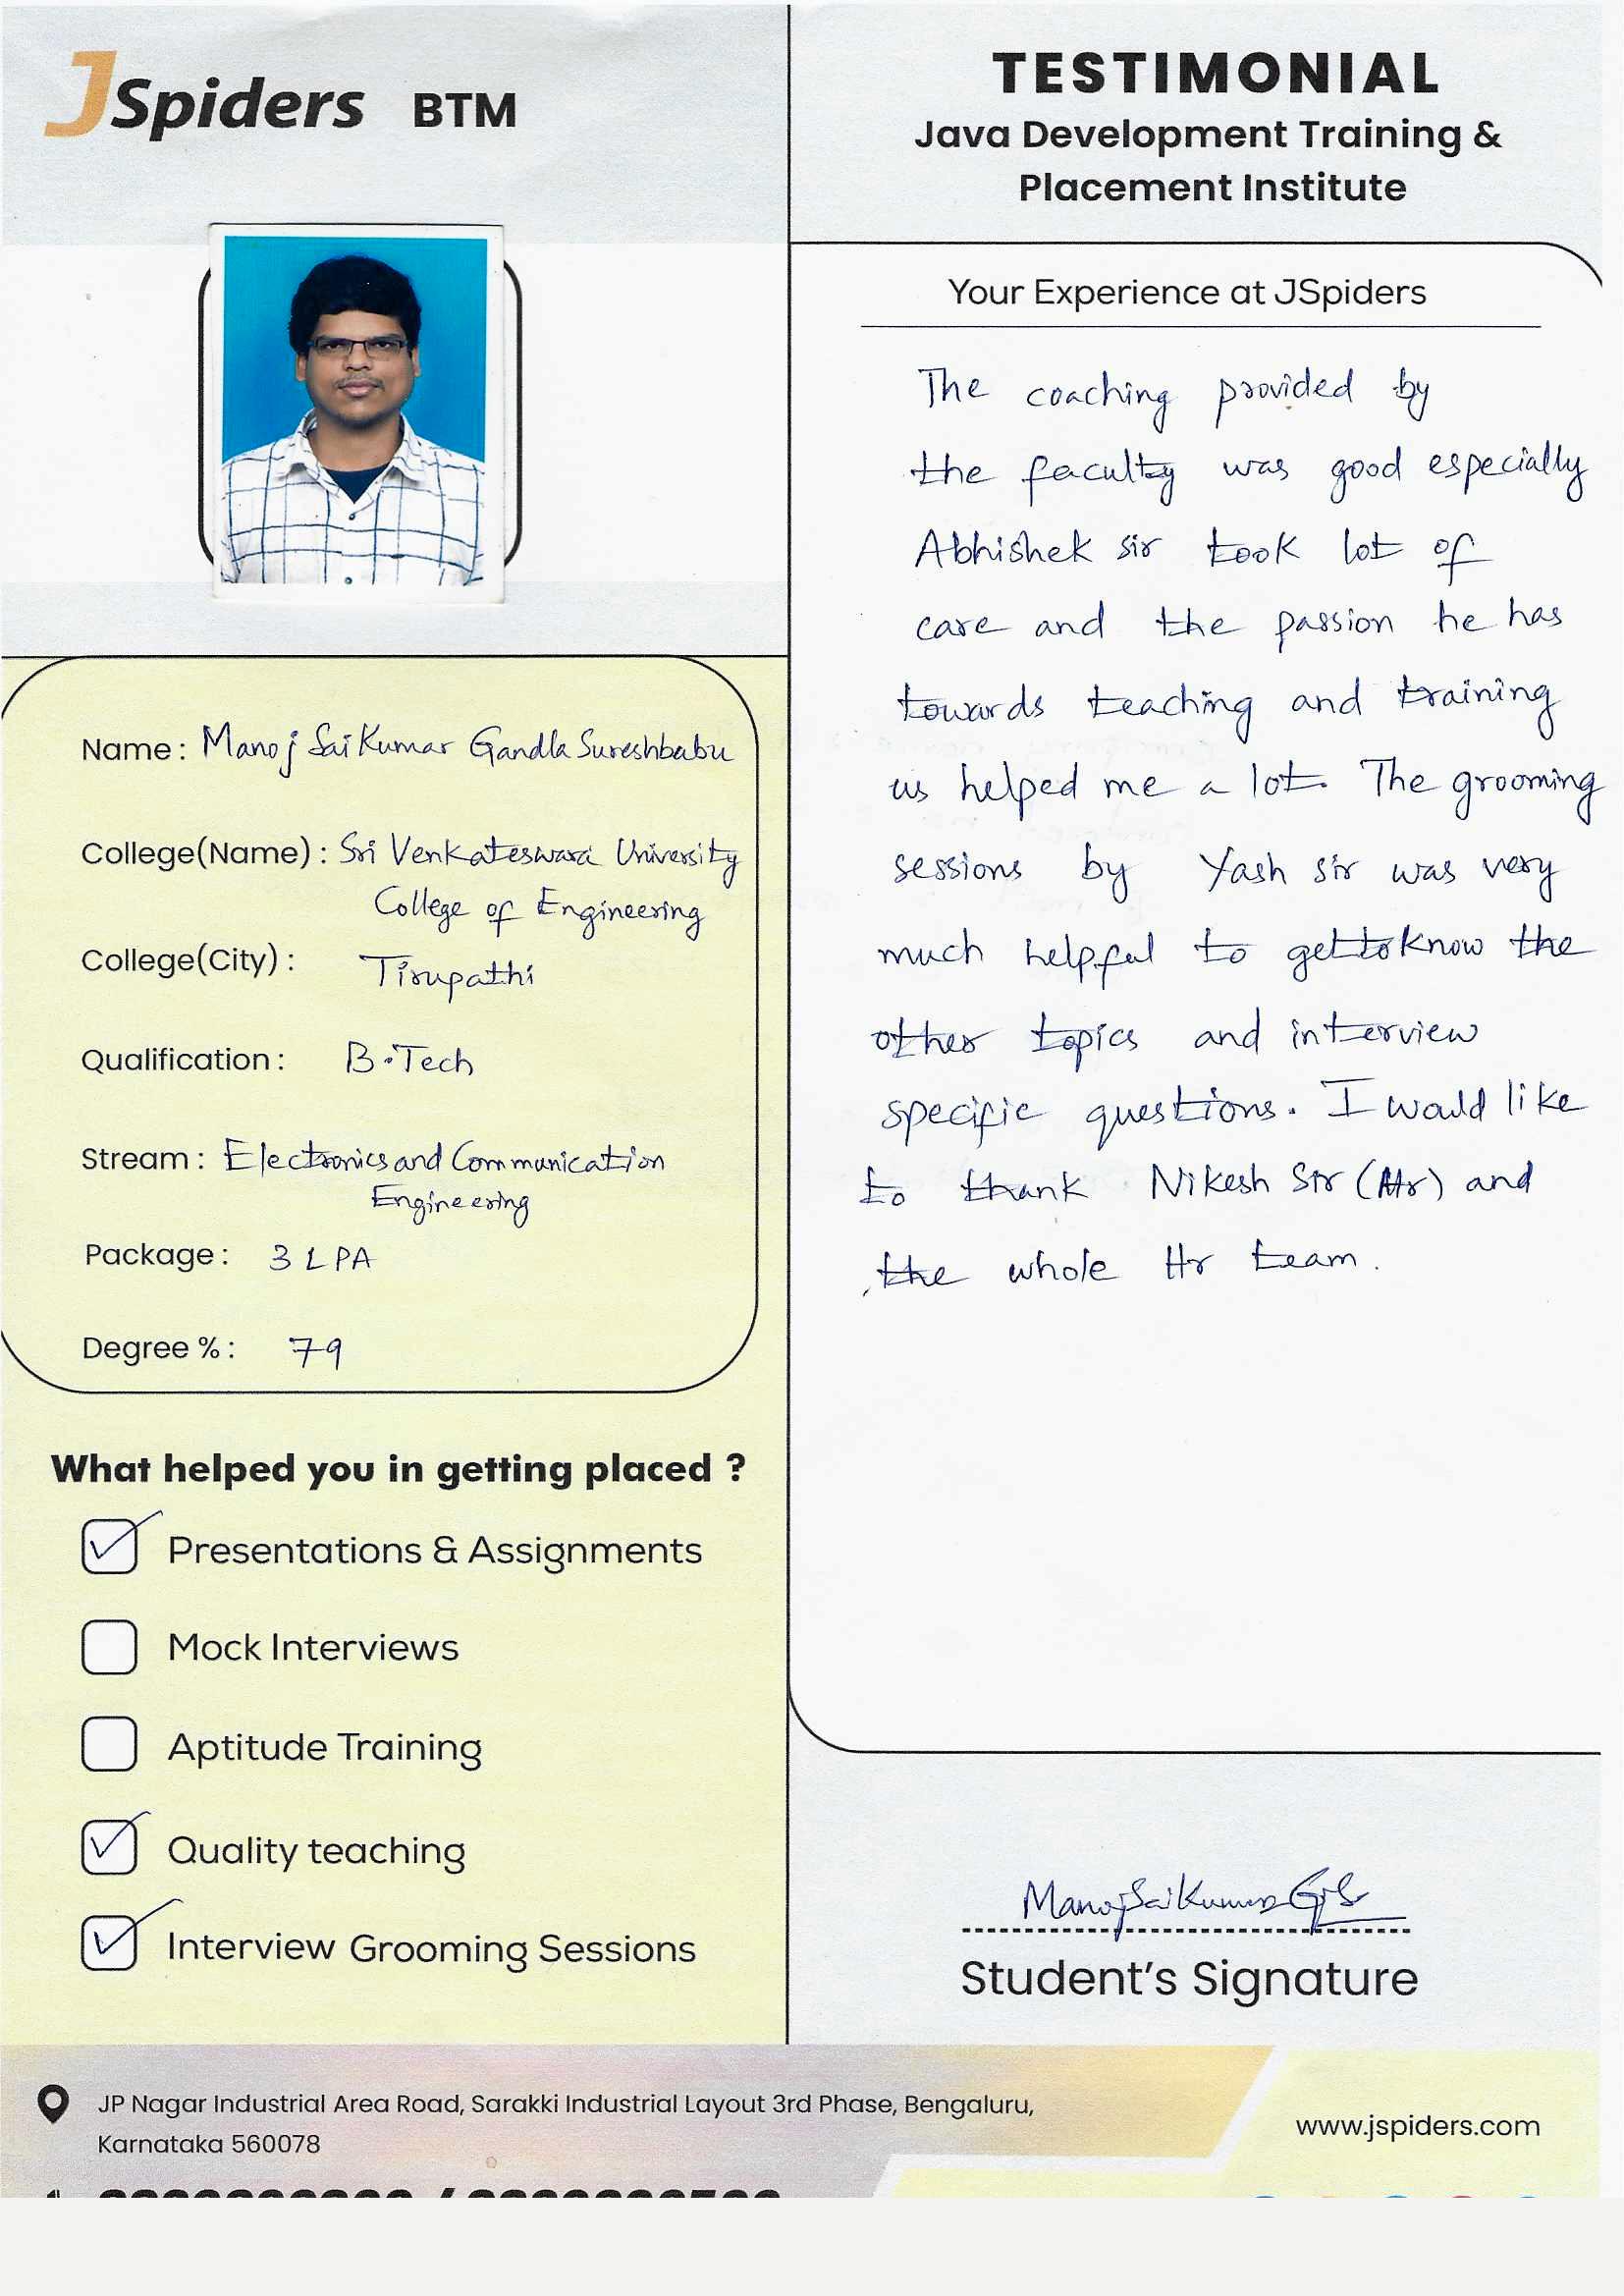 JSpiders BTM
Name : Manoj Sai Kumar Gandla Sureshbabu
College(Name) : Sri Venkateswara University
College of Engineering
College(City) : Tirupathi
Qualification : B.Tech
Stream : Electronics and Communication
Engineering
Package : 3 LPA
Degree % : 79
What helped you in getting placed ?
Presentations & Assignments
Mock Interviews
Aptitude Training
Quality teaching
Interview Grooming Sessions
TESTIMONIAL
Java Development Training &
Placement Institute
Your Experience at JSpiders
The coaching provided by
the faculty was good especially
Abhishek sir took lot of
care and the passion he has
towards teaching and training
us helped me a lot. The grooming
sessions by Yash sir was very
much helpful to get to know the
other topics and interview
specific questions. I would like
to thank Nikesh Sir (Hr) and
the whole Hr team.
Manoj Sai Kumar G S
Student's Signature
JP Nagar Industrial Area Road, Sarakki Industrial Layout 3rd Phase, Bengaluru,
Karnataka 560078
www.jspiders.com